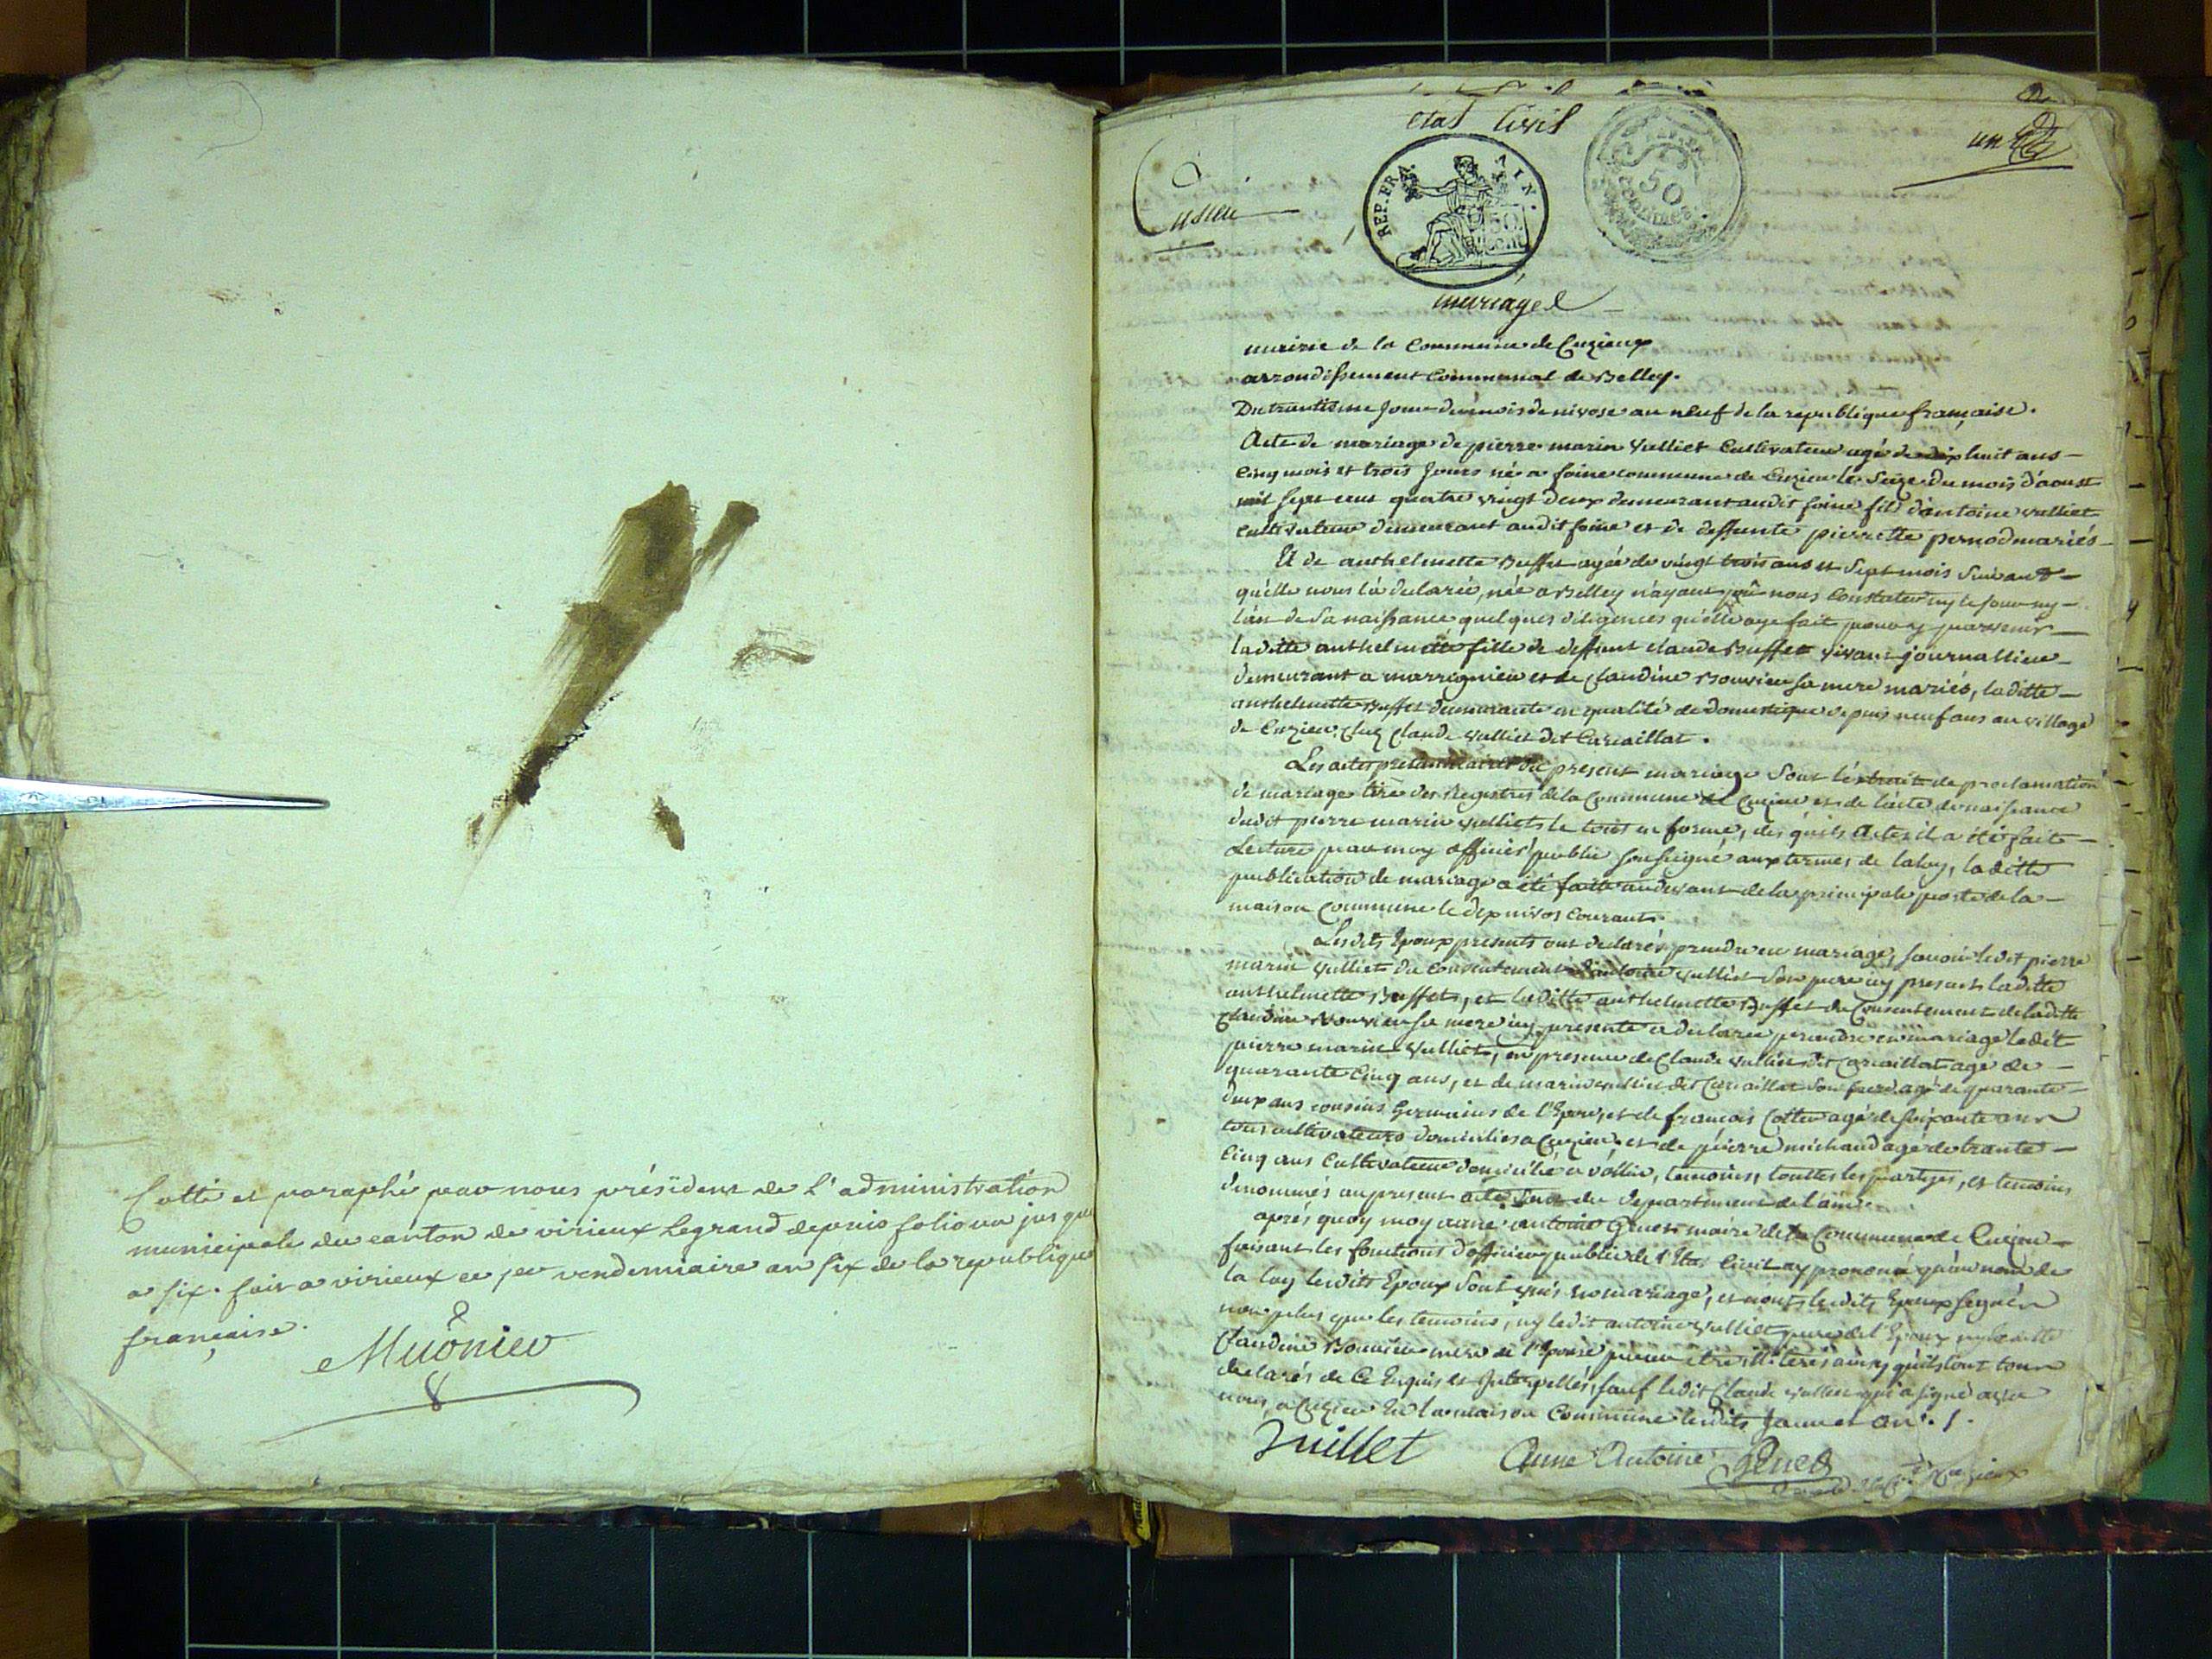 Cotté et paraphé par nous président de l'administration
municipale du canton de virieux Legrand depuis folio un jusque
a six. fait a virieux ce jer vendemiaire an six de la republique
française.
Muônier
etat Civil
un
Cusieu
REP. FRA. 
50 cent
50
centimes
mariage
mairie de la Commune de Cuzieux
arrondissement Communal de Belley.
Du trantieme Jour du mois de nivose an neuf de la republique française.
Acte de mariage de pierre marin Vulliet Cultivateur agé de dix huit ans
Cinq mois et trois Jours né a foine commune de Cuzieu le Seize du mois d'aoust
mil sept cent quatre vingt deux demeurant audit foine fils d'antoine vulliet
cultivateur demeurant audit foine et de deffunte pierrette pernod mariés
Et de anthelmette Buffet agée de vingt trois ans et Sept mois Suivant
quélle nous l'a declarée, née a Belley n'ayant pû nous Constater ny le jour ny
l'an de Sa naissance quelques diligences qu'elle aye fait pour y parvenir
laditte anthelmette fille de deffunt claude Buffet vivant journallier
demeurant a marrignieu et de Claudine Bouvier sa mere mariés, laditte
anthelmette Buffet demeurante en qualité de domestique depuis neuf ans au village
de Cuzieu Chez Claude vulliet dit Carcaillat.
Les actes preliminaires du present mariage Sont l'extrait de proclamation
de mariage tiré des Registres de la Commune de Cuzieu et de l'acte de naissance
dudit pierre marin vulliet le tout en forme, des quels Actes il a été fait
Lecture par moy officier public soussigné aux termes de la loy, laditte
publication de mariage a été faitte au devant de la principale porte de la
maison Commune le dix nivos Courant.
Lesdits Epoux presents ont declarés prendre en mariage, savoir ledit pierre
marin vulliet du Consentement d'antoine vulliet Son pere icy present laditte
anthelmette Buffet, et laditte anthelmette Buffet du Consentement de laditte
Claudine Bouvier sa mere icy presente a declaree prendre en mariage ledit
pierre marin vulliet, en presence de Claude vulliet dit Carcaillat agé de
quarante Cinq ans, et de marin vulliet dit Carcaillat Son frere agé de quarante
deux ans cousins Germains de l'Epoux, et de françois Cottier agé de soixante ans
tous cultivateurs domiciliés a Cuzieu, et de pierre michaud agé de trante
Cinq ans Cultivateur domicilié a vollin, temoins, touttes les partyes, et temoins
denommés au present acte Sont du departement de l'ain
aprés quoy moy anne antoine Genet maire de la Commune de Cuzieu
faisant les fonctions d'officier public de l'Etat Civil ay prononcé qu'au nom de
la loy lesdits Epoux Sont unis en mariage, et n'ont lesdits Epoux Signés
non plus que les temoins, ny ledit antoine vulliet pere de l'Epoux ny laditte
Claudine Bouvier mere de l'Epouse pour etre illiterés ainsy qu'ils l'ont tous
declarés de Ce Enquis et Interpellés, sauf ledit Claude vulliet qui a signé avec
nous, a Cuzieu En la maison Commune lesdits Jour et an.
Vuillet
Anne Antoine Genet